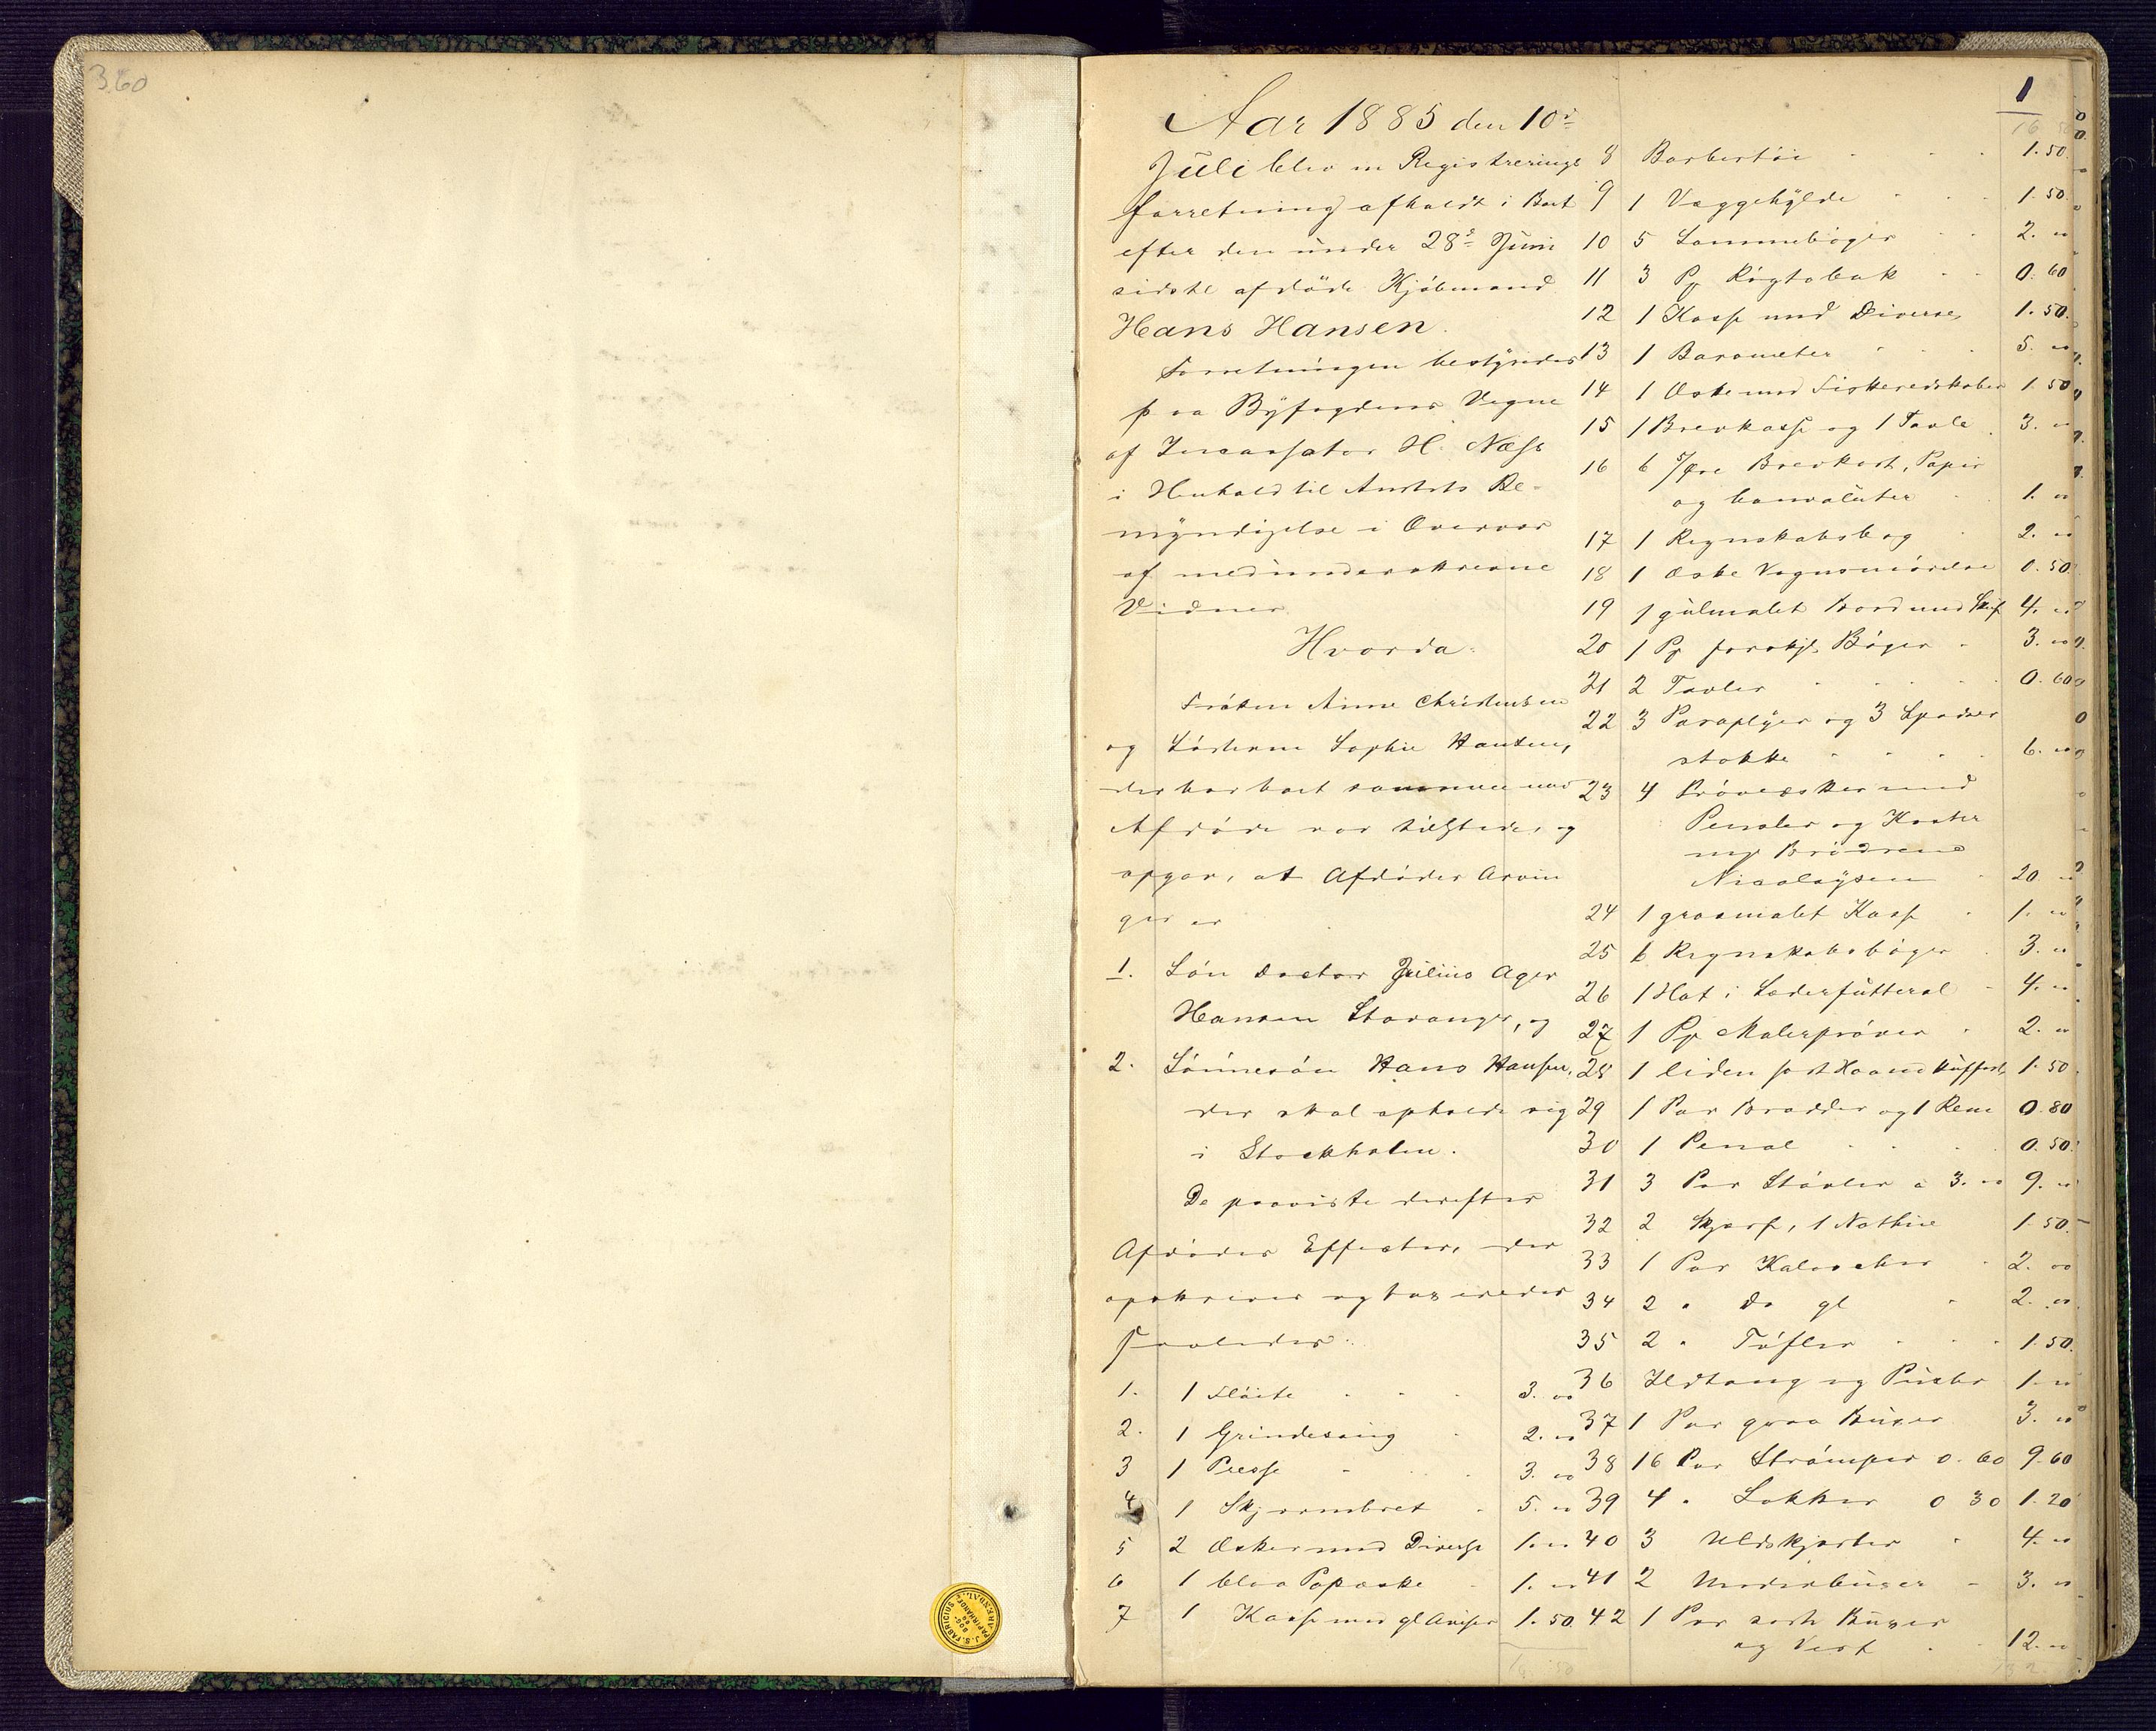 360
1
Aar 1885 den 10de
Juli blev en Registrerings
forretning afholdt i Boet
efter den under 28de Juni
sidste afdøde Kjøbmand
Hans Hansen.
Forretningen bestyredes
paa Byfogdens Vegne
af Incassator H. Næss
i Henhold til Amtets Be-
myndigelse i Overvær
af medunderskrevne
Vidner
Hvorda:
Frøken Anne Christensen
og Søsteren Sophie Hansen,
der har boet sammen med
Afdøde var tilstede, og
opgav, at Afdødes Arvin
ger er
1. Søn Doctor Julius Ager
Hansen Stavanger, og
2. Sønnesøn Hans Hansen,
der skal opholde sig
i Stockholm.
De paaviste derefter
Afdødes Effecter, der
opskreves og taxeredes
saaledes:
1. 1 Fløite 3. 00
2. 1 Grindesaug 2. 00
3 1 Presse 3. 00
4 1 Skjærmbret 5. 00
5 2 Æsker med Diverse 1. 00
6 1 blaa Papæske 1. 00
7 1 Kasse med gl Aviser 1. 50
16 50
16 50
8 Barbertøi 1. 50
9 1 Væggehylde 1. 50
10 5 Lommebøger 2. 00
11 3 Pk Røgtobak 0. 60
12 1 Kasse med Diverse 1. 50
13 1 Barometer 5. 00
14 1 Æske med Fiskeredskaber 1. 50
15 1 Brevkasse og 1 Tavle 3. 00
16 6 5/øre Brevkort, Papir
og Convoluter 1. 00
17 1 Regnskabsbog 2. 00
18 1 Æske Vognsmørelse 0. 50
19 1 gulmalet Bord med Skuf 4. 00
20 1 Pk forskjl. Bøger 3. 00
21 2 Tavler 0. 60
22 3 Paraplyer og 3 Spadser
stokke 6. 00
23 4 Prøveæsker med
Pensler og Koster
Brødrene
Nicolaysen 20. 00
24 1 graamalet Kasse 1. 00
25 6 Regnskabsbøger 3. 00
26 1 Hat i Læderfutteral 4. 00
27 1 Pk Malerprøver 2. 00
28 1 liden sort Haandkuffert 1. 50
29 1 Par Brodder og 1 Rem 0. 80
30 1 Penal 0. 50
31 3 Par Støvler a 3. 00 9. 00
32 2 Skjærf, 1 Nathue 1. 50
33 1 Par Kaloscher 2. 00
34 2 " Do gl 2. 00
35 2 " Tøfler 1. 50
36 Ildtang og Puster 1. 00
37 1 Par graa Buxer 3. 00
38 16 Par Strømper 0. 60 9. 60
39 4 " Sokker 0 30 1. 20
40 3 Uldskjorter 4. 00
41 2 Underbuxer 3. 00
42 1 Par sorte Buxer
og Vest 12. 00
132.
J. S. FABRICIUS
BOG-
OG
PAPIRHANDEL
ARENDAL